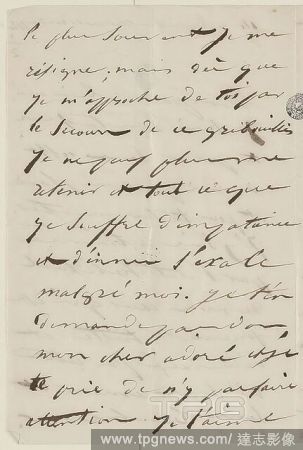 le plus souvent je me
résigne, mais dès que
je m'approche de toi par
le secours de ce gribouillis
je ne puis plus me
retenir et tout ce que
je souffre d'impatience
et d'ennui s'exale
malgré moi. je t'en
demande pardon
mon cher adoré et je
te prie de n'y pas faire
attention je t'aime
TPG
www.tpgnews.com / 達志影像